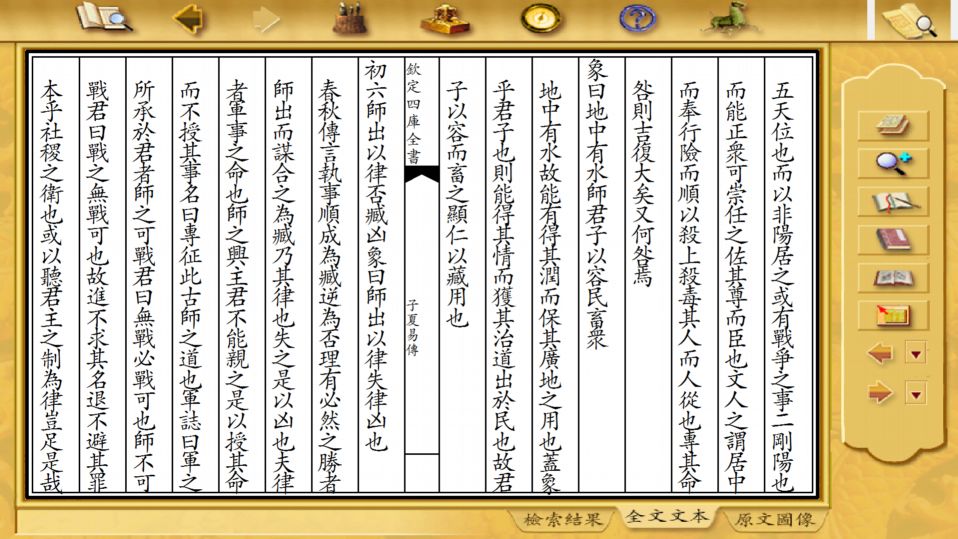 五天位也而以非陽居之或有戰爭之事二剛陽也
而能正衆可崇任之佐其尊而臣也文人之謂居中
而奉行險而順以殺上殺毒其人而人從也專其命
咎則吉復大矣又何咎焉
象曰地中有水師君子以容民畜衆
地中有水故能有得其潤而保其廣地之用也蓋象
乎君子也則能得其情而獲其治道出於民也故君
子以容而畜之顯仁以藏用也
欽定四庫全書
子夏易傳
初六師出以律否臧凶象曰師出以律失律凶也
春秋傳言執事順成為臧逆為否理有必然之勝者
師出而謀合之為臧乃其律也失之是以凶也夫律
者軍事之命也師之興主君不能親之是以授其命
而不授其事名曰專征此古師之道也軍誌曰軍之
所承於君者師之可戰君曰無戰必戰可也師不可
戰君曰戰之無戰可也故進不求其名退不避其罪
本乎社稷之衛也或以聽君主之制為律豈足是哉
檢索結果
全文文本
原文圖像